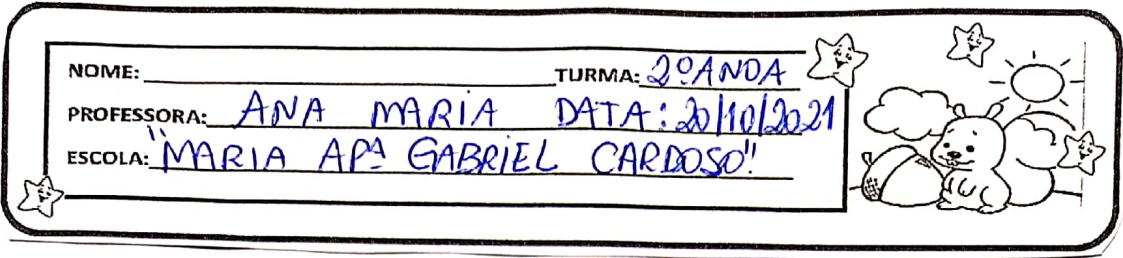 NOME: TURMA: 2º ANO A
PROFESSORA: ANA MARIA DATA: 20/10/2021
ESCOLA: "MARIA APª GABRIEL CARDOSO"